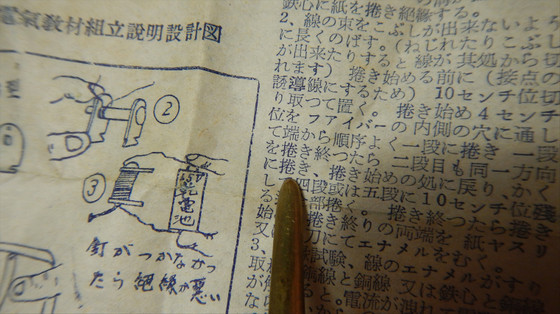 電氣教材組立説明設計図
型
②
③
乾電池
釘がつかなかっ
たら絶線が悪い
鉄心に紙を捲き絶縁する。
2、線の束をこぶしが出来ないよ
に長くのばす。(ねじれたりこぶし
が出来たりすると線が其処から切
れます) 捲き始める前に(接点の
誘導線にするため) 10センチ位切
り取つて置く。 捲き始め4センチ
位をファイバーの内側の穴に通し
て端から順序よく一段に捲き 一段
を捲き終つたら 二段目も同一方向
に捲き、捲き始めの処に戻り、かく
し 四段或は五段に10センチ位残
る 部捲く。 捲き終つたら捲き
始 捲き終りの両端を 紙ヤスリ
又 刀にてエナメルをむく。
3、 試験、線のエナメルがすり
取 線と銅線 又は鉄心と銅線
が と。電流が洩れ